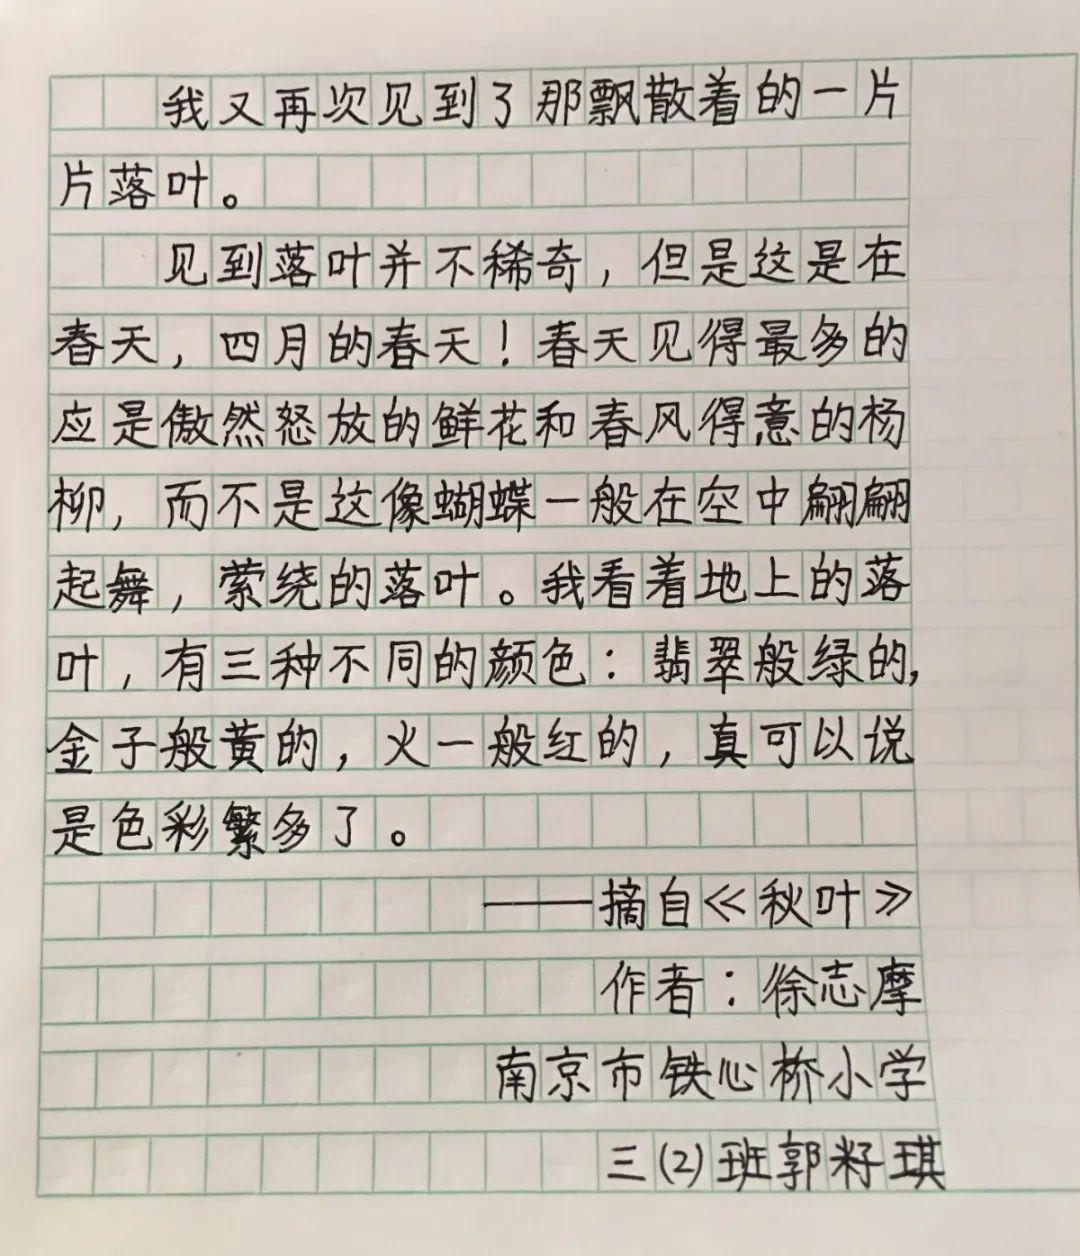 我又再次见到了那飘散着的一片
片落叶。
见到落叶并不稀奇，但是这是在
春天，四月的春天！春天见得最多的
应是傲然怒放的鲜花和春风得意的杨
柳，而不是这像蝴蝶一般在空中翩翩
起舞，萦绕的落叶。我看着地上的落
叶，有三种不同的颜色：翡翠般绿的，
金子般黄的，火一般红的，真可以说
是色彩繁多了。
——摘自《秋叶》
作者：徐志摩
南京市铁心桥小学
三(2)班郭籽琪